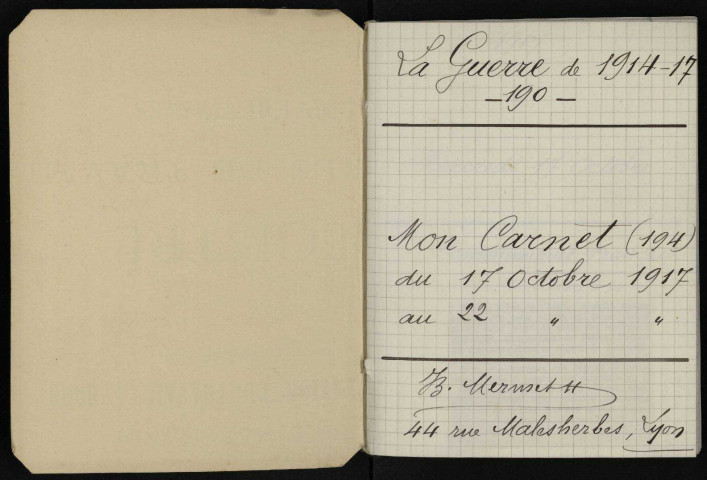 La Guerre de 1914-17
- 190 -
Mon Carnet (194)
du 17 Octobre 1917
au 22 " "
B. Mermet
44 rue Malesherbes, Lyon